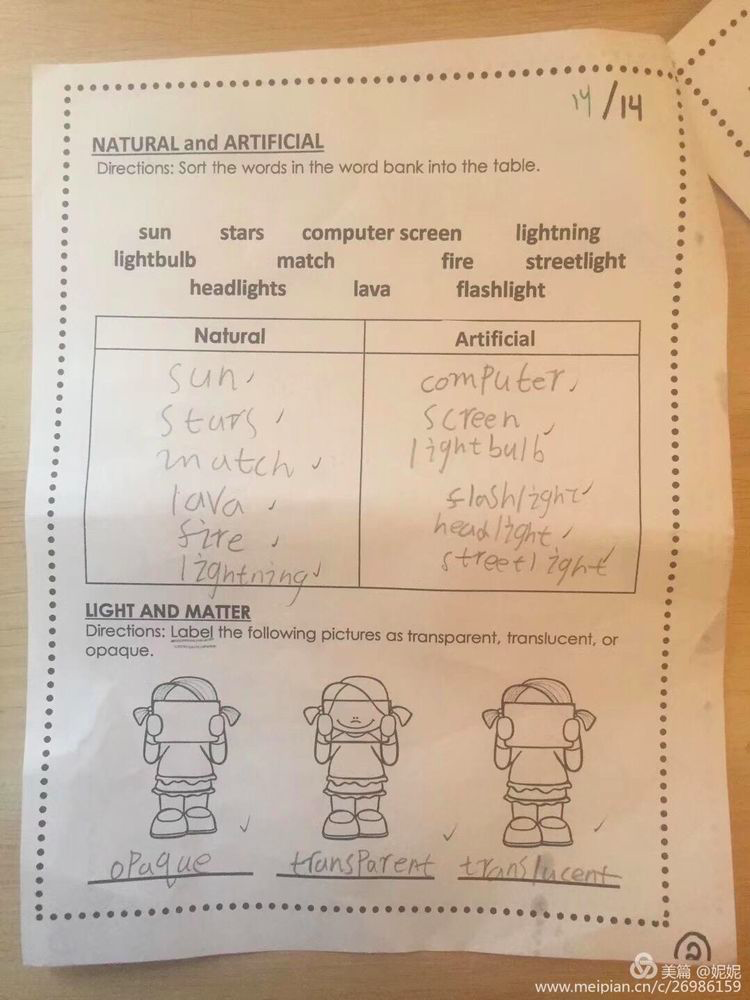 14/14
NATURAL and ARTIFICIAL
Directions: Sort the words in the word bank into the table.
sun stars computer screen lightning
lightbulb match fire streetlight
headlights lava flashlight
Natural Artificial
sun computer
stars screen
match lightbulb
lava flashlight
fire headlight
lightning streetlight
LIGHT AND MATTER
Directions: Label the following pictures as transparent, translucent, or
opaque.
opaque transparent translucent
2
美篇 @妮妮
www.meipian.cn/c/26986159